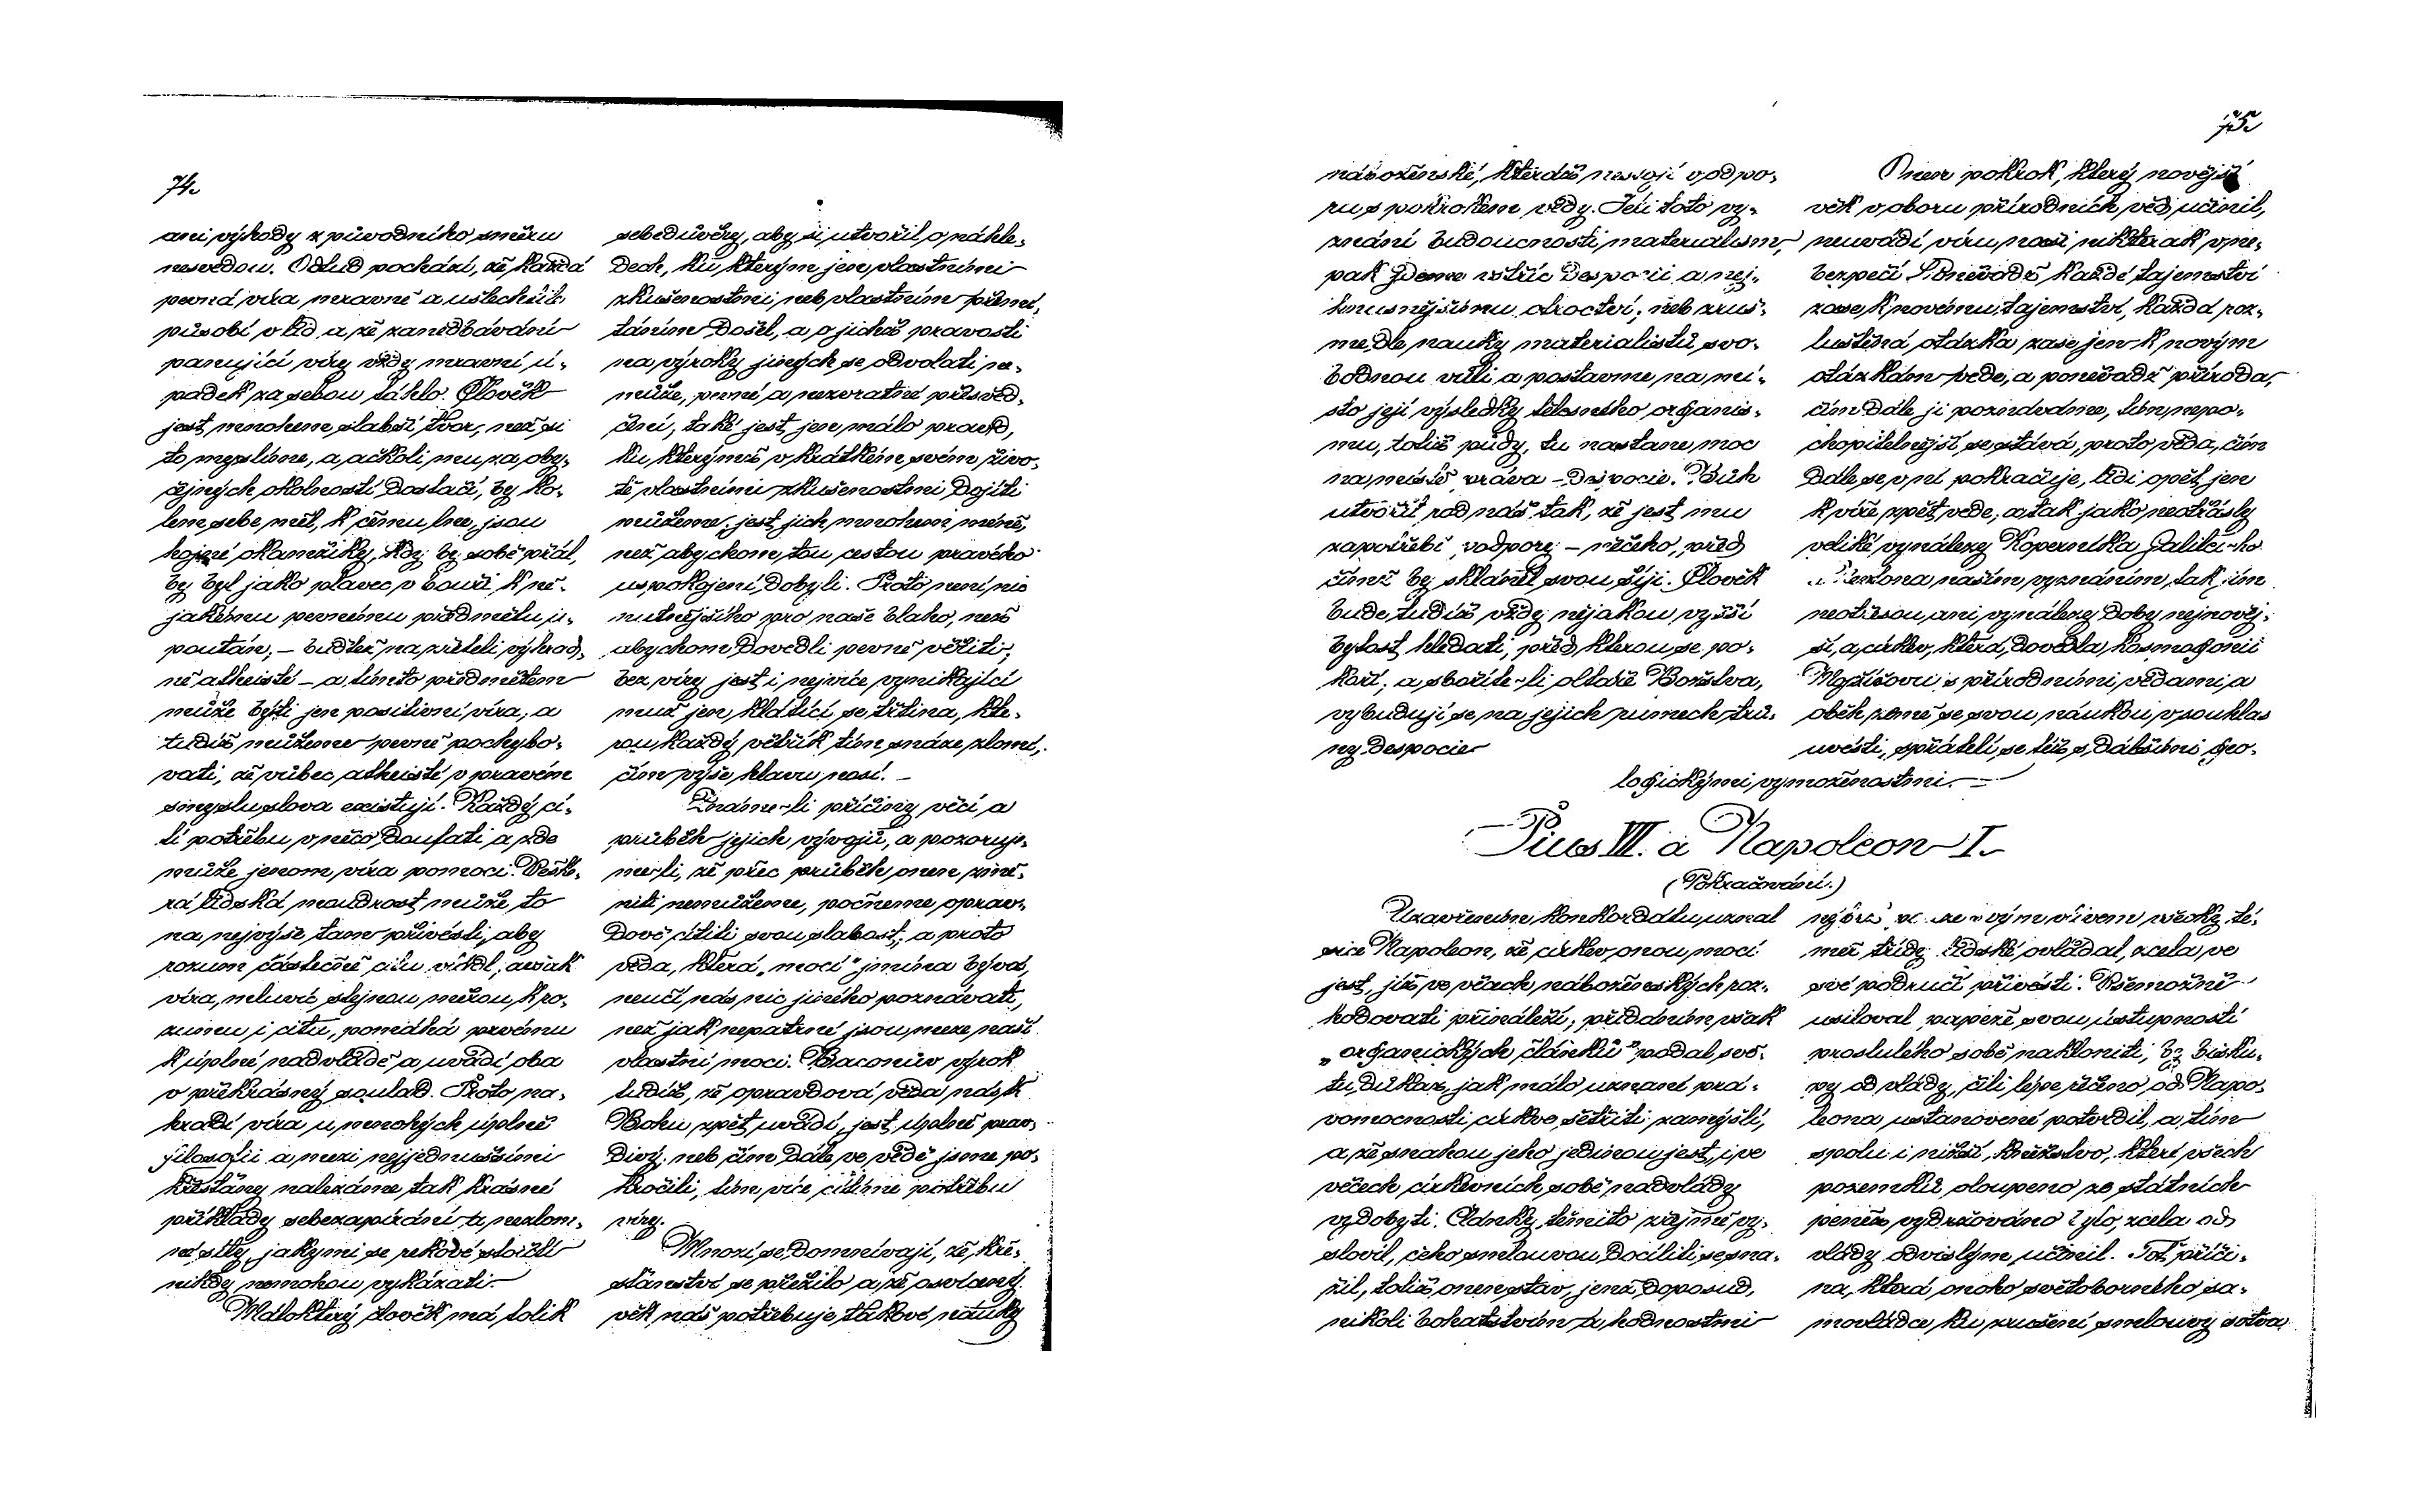 74.
ani výhody z původního směru
nesvedou. Odtud pochází, že každá
pevná víra mravně a ušlechtile
působí v lid a, že zanedbávání
panující víry vždy mravní ú-
padek za sebou táhlo. Člověk
jest mnohem slabší tvor, než si
to myslíme, a ačkoli mu za oby-
čejných okolností dostačí, by ko-
lem sebe měl, k čemu lne, jsou
hojné okamžiky, kdy by sobě přál,
by byl jako plavec v bouři k ně-
jakému pevnému předmětu u-
poután; – budtež na zřeteli výhrad-
ně atheisté – a tímto předmětem
může býti jen positivní víra, a
tudíž můžeme pevně pochybo-
vati, že vůbec atheisté v pravém
smyslu slova existují. Každý cí-
tí potřebu v něco doufati a zde
může jenom víra pomoci. Veške-
rá lidská moudrost může to
na nejvýše tam přivésti, aby
rozum částečně citu vítal, avšak
víra, mluvíc stejnou měrou k ro-
zumu i citu, pomáhá prvému
k úplné nadvládě a uvádí oba
v překrásný soulad. Proto na-
hradí víra u mnohých úplně
filosofii a mezi nejjednoduššími
křesťany nalezáme tak krásné
příklady sebezapírání a nezlom-
né síly, jakými se rekové stoičtí
nikdy nemohou vykázati.
Málokterý člověk má tolik
sebedůvěry, aby si utvořil o náhle-
dech, ku kterým jen vlastními
zkušenostmi neb vlastním přemí-
táním došel, a o jichž pravosti
na výroky jiných se odvolati ne-
může, pevné a nezvratné přesvěd-
čení, také jest jen málo pravd,
ku kterýmž v krátkém svém živo-
tě vlastními zkušenostmi dojíti
můžeme; jest jich mnohem méně,
než abychom tou cestou pravého
uspokojení dobyli. Proto není nic
nutnějšího pro naše blaho, než
abychom dovedli pevně věřiti;
bez víry jest i nejvíce vynikající
muž jen klátící se třtina, kte-
rou každý větřík tím snáze zlomí,
čím výše hlavu nosí. –
Známe-li příčiny věcí a
průběh jejich vývojů, a pozoruje-
me-li, že přec průběh onen změ-
niti nemůžeme, počneme oprav-
dově cítiti svou slabost; a proto
věda, která „mocí“ jmína bývá,
neučí nás nic jiného poznávati,
než jak nepatrné jsou meze naší
vlastní moci. Baconův výrok
tudíž, že opravdová věda nás k
Bohu zpět uvádí, jest úplně prav-
divý; neb čím dále ve vědě jsme po-
kročili, tím více cítíme potřebu
víry.
Mnozí se domnívají, že kře-
sťanství se přežilo a že osvícený
věk náš potřebuje takové nauky
75.
náboženské, kteráž nestojí v odpo-
ru s pokrokem vědy. Jeli toto vy-
znání budoucnosti materialism,
pak jdeme vstříc despocii a nej-
hnusnějšímu otroctví; neb zruš-
me dle nauky materialistů svo-
bodnou vůli a postavme na mí-
sto její výsledky tělesného organis-
mu, totiž pudy, tu nastane moc
na místě práva – despocie. Bůh
utvořil rod náš tak, že jest mu
zapotřebí podpory – něčeho, před
čímž by skláněl svou šíji. Člověk
bude tudíž vždy nějakou vyšší
bytost hledati, před kterou se po-
koří; a sboříte-li oltáře Božstva,
vybudují se na jejich rumech trů-
ny despocie
Onen pokrok, který novější
věk v oboru přírodních věd učinil,
neuvádí víru naši nikterak v ne-
bezpečí. Poněvadž každé tajemství
zase k novému tajemství, každá roz-
luštěná otázka zase jen k novým
otázkám vede, a poněvadž příroda,
čím dále ji poznáváme, tím nepo-
chopitelnější se stává, proto věda, čím
dále se v ní pokračuje, lidi opět jen
k víře zpět vede; a tak jako neotřásly
veliké vynálezy Koperníka Galilei-ho
naším vyznáním, tak jím
neotřesou ani vynálezy doby nejnověj-
ší, a církev, která dovedla kosmogonii
Mojžíšovu s přírodními vědami a
oběh země se svou náukou v souhlas
uvésti, spřátelí se též s dalšími geo-
logickými vymoženostmi. –
Pius VII. a Napoleon I.
(Pokračování.)
Uzavřením konkordátu uznal
sice Napoleon, že církev onou mocí
jest, jíž ve věcech náboženských roz-
hodovati přináleží; přidáním však
„organických článků“ podal svě-
tu důkaz, jak málo uznané prá-
vomocnosti církve šetřiti zamýšlí,
a že snahou jeho jedinou jest, i ve
věcech církevních sobě nadvlády
vydobyti. Články těmito zřejmě vy-
slovil, čeho smlouvou docíliti se sna-
žil, totiž onen stav, jenž doposud,
nikoli bohatstvím a hodnostmi
nýbrž vlivem všecky té-
měř třídy lidské ovládal, zcela ve
své područí přivésti. Všemožně
usiloval papeže svou ústupností
prosluleho sobě nakloniti, by bisku-
py od vlády, čili lépe řečeno od Napo-
leona ustanovené potvrdil, a tím
spolu i nižší kněžstvo, které všech
pozemků oloupeno ze státních
peněz vydržováno bylo, zcela od
vlády odvislým učinil. Toť příči-
na, která onoho světoborného sa-
movládce ku zrušení smlouvy sotva